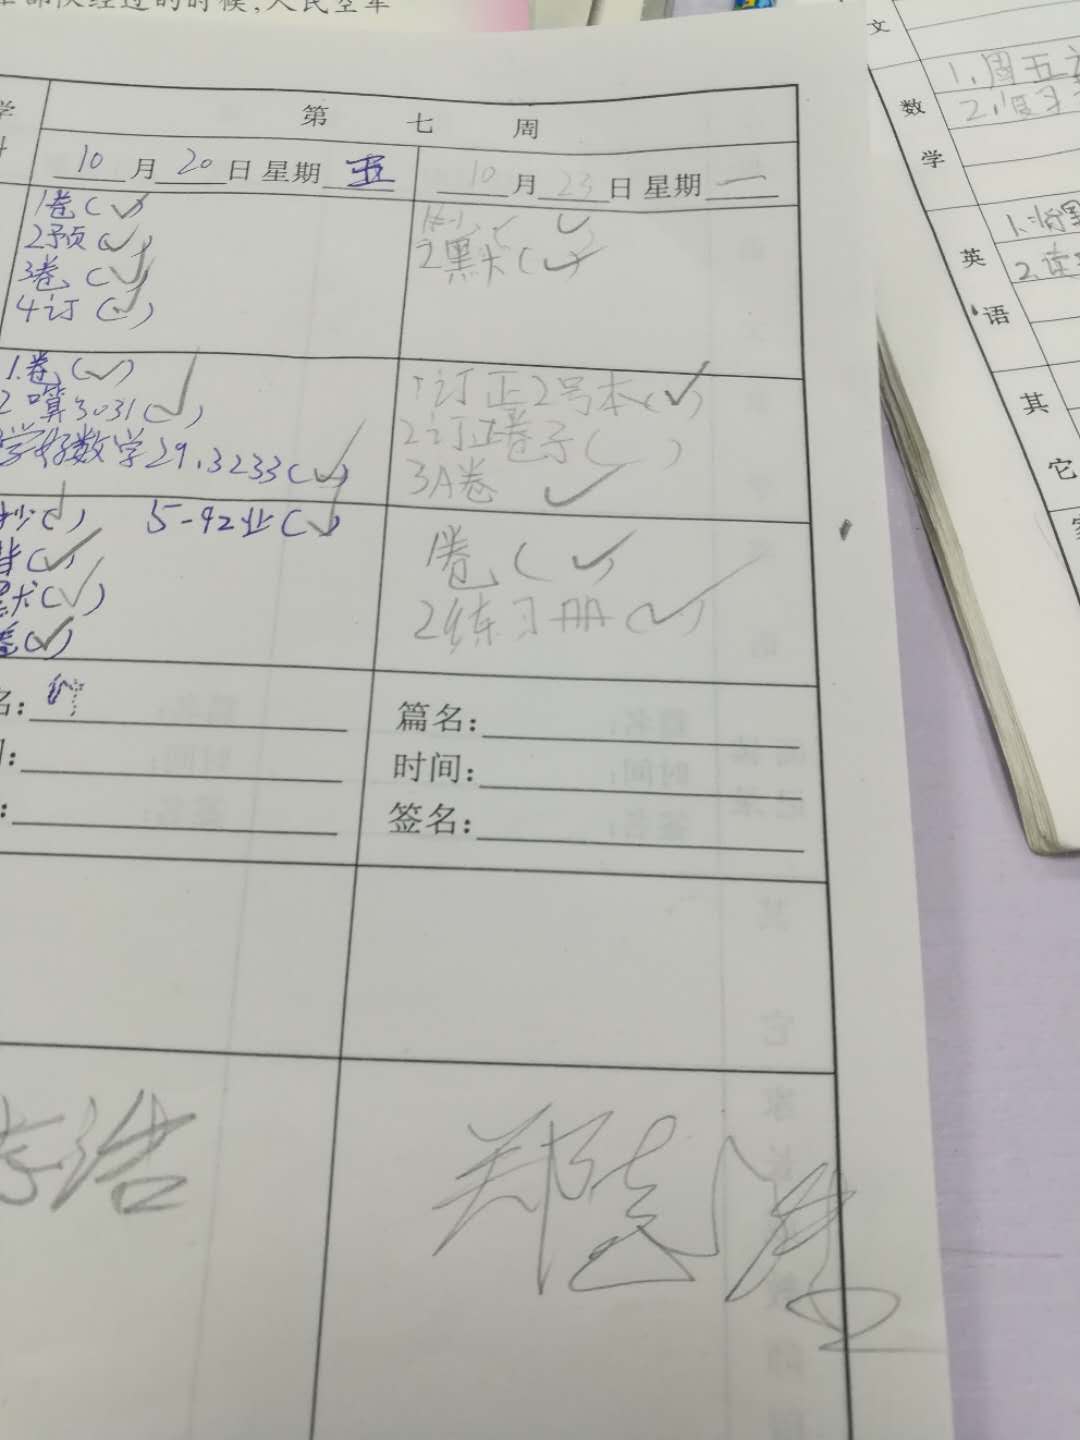 的时候,人民空军
第 七 周
10月20日 星期五
10月23日 星期一
1卷(✓)
2预(✓)
3卷(✓)
4订(✓)
2黑犬(✓)
1.卷(✓)
2口算3031(✓)
学好数学29.3233(✓)
1订正2号本(✓)
2订正卷子( )
3A卷 ✓
5-92业(✓)
1卷(✓)
2练习册(✓)
名:
篇名:
时间:
签名:
浩
郑
文
数学
1.周五
2.复习
英语
其它